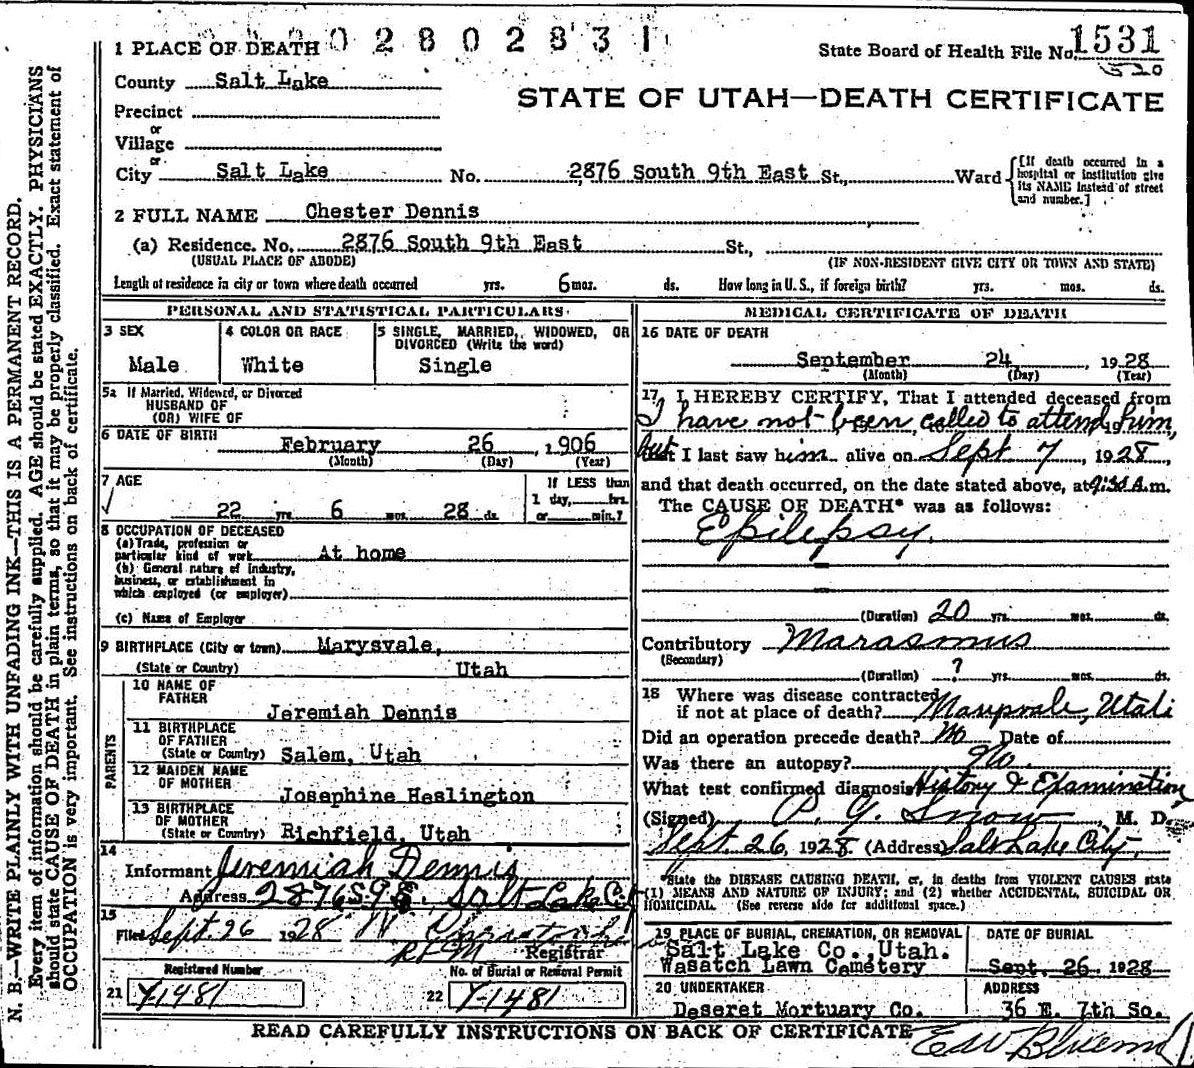 0 2 8 0 2 8 3 1
1 PLACE OF DEATH
State Board of Health File No. 1531
520
County Salt Lake
STATE OF UTAH—DEATH CERTIFICATE
Precinct
or
Village
or
City Salt Lake No. 2876 South 9th East St., Ward
[If death occurred in a hospital or institution give its NAME instead of street and number.]
2 FULL NAME Chester Dennis
(a) Residence. No. 2876 South 9th East St.,
(USUAL PLACE OF ABODE) (IF NON-RESIDENT GIVE CITY OR TOWN AND STATE)
Length of residence in city or town where death occurred yrs. 6 mos. ds. How long in U. S., if foreign birth? yrs. mos. ds.
PERSONAL AND STATISTICAL PARTICULARS
3 SEX
Male
4 COLOR OR RACE
White
5 SINGLE, MARRIED, WIDOWED, OR DIVORCED (Write the word)
Single
5a If Married, Widowed, or Divorced
HUSBAND OF
(OR) WIFE OF
6 DATE OF BIRTH
February 26, 1906
(Month) (Day) (Year)
7 AGE
22 yrs. 6 mos. 28 ds.
If LESS than
1 day, hrs.
or min.?
8 OCCUPATION OF DECEASED
(a) Trade, profession or
particular kind of work At home
(b) General nature of Industry,
business, or establishment in
which employed (or employer)
(c) Name of Employer
9 BIRTHPLACE (City or town) Marysvale,
(State or Country) Utah
PARENTS
10 NAME OF FATHER
Jeremiah Dennis
11 BIRTHPLACE OF FATHER
(State or Country) Salem, Utah
12 MAIDEN NAME OF MOTHER
Josephine Heslington
13 BIRTHPLACE OF MOTHER
(State or Country) Richfield, Utah
14
Informant Jeremiah Dennis
Address 2876 S 9 E. Salt Lake City
15
Filed Sept 26 1928
Registrar
Registered Number
21 Y-1481
No. of Burial or Removal Permit
22 Y-1481
MEDICAL CERTIFICATE OF DEATH
16 DATE OF DEATH
September 24, 1928
(Month) (Day) (Year)
17 I HEREBY CERTIFY, That I attended deceased from
I have not been called to attend, 19 him,
but I last saw him alive on Sept 7, 1928,
and that death occurred, on the date stated above, at 9:30 A.m.
The CAUSE OF DEATH* was as follows:
Epilepsy.
(Duration) 20 yrs. mos. ds.
Contributory Marasmus
(Secondary)
(Duration) ? yrs. mos. ds.
18 Where was disease contracted
if not at place of death? Marysvale, Utah
Did an operation precede death? No Date of
Was there an autopsy? No.
What test confirmed diagnosis History & Examination
(Signed) P. G. Snow, M. D.
Sept. 26, 1928. (Address) Salt Lake City.
*State the DISEASE CAUSING DEATH, or, in deaths from VIOLENT CAUSES state
(1) MEANS AND NATURE OF INJURY; and (2) whether ACCIDENTAL, SUICIDAL OR
HOMICIDAL. (See reverse side for additional space.)
19 PLACE OF BURIAL, CREMATION, OR REMOVAL
Salt Lake Co., Utah.
Wasatch Lawn Cemetery
DATE OF BURIAL
Sept. 26 1928
20 UNDERTAKER
Deseret Mortuary Co.
ADDRESS
36 E. 7th So.
READ CAREFULLY INSTRUCTIONS ON BACK OF CERTIFICATE
N. B.—WRITE PLAINLY WITH UNFADING INK—THIS IS A PERMANENT RECORD.
Every item of information should be carefully supplied. AGE should be stated EXACTLY. PHYSICIANS
should state CAUSE OF DEATH in plain terms, so that it may be properly classified. Exact statement of
OCCUPATION is very important. See instructions on back of certificate.